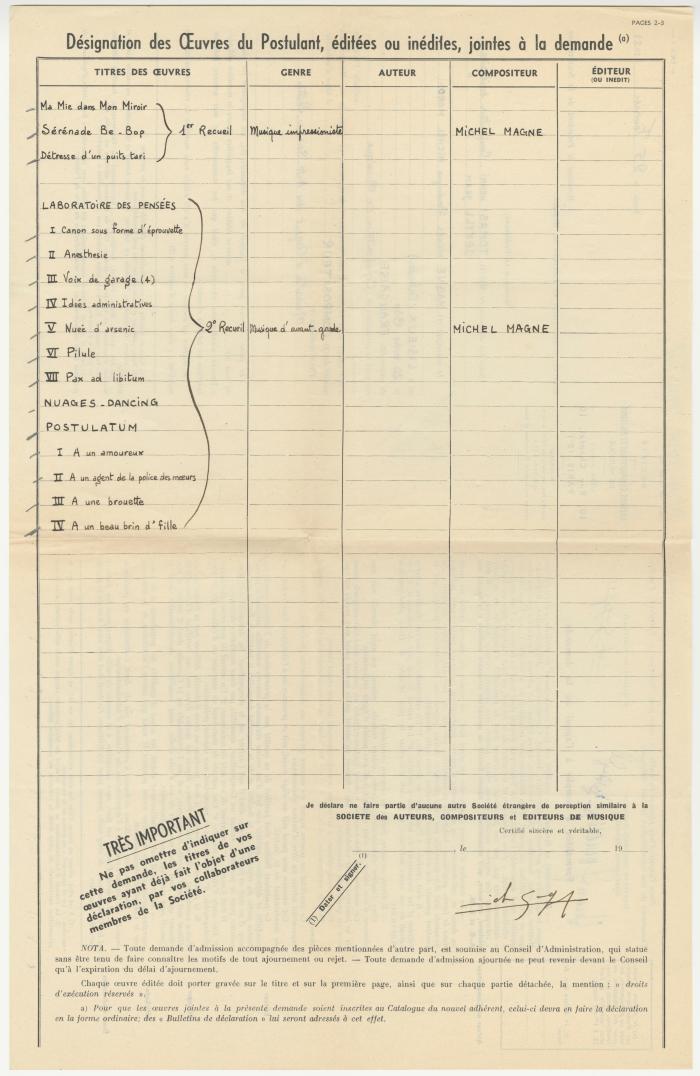 PAGES 2-3
Désignation des Œuvres du Postulant, éditées ou inédites, jointes à la demande (a)
TITRES DES ŒUVRES GENRE AUTEUR COMPOSITEUR ÉDITEUR
(OU INEDIT)
Ma Mie dans Mon Miroir
Sérénade Be-Bop 1er Recueil Musique impressioniste MICHEL MAGNE
Détresse d'un puits tari
LABORATOIRE DES PENSÉES
I Canon sous forme d'éprouvette
II Anesthesie
III Voix de garage (4)
IV Idées administratives
V Nuée d'arsenic 2e Recueil Musique d'avant-garde MICHEL MAGNE
VI Pilule
VII Pax ad libitum
NUAGES-DANCING
POSTULATUM
I A un amoureux
II A un agent de la police des mœurs
III A une brouette
IV A un beau brin d'fille
Je déclare ne faire partie d'aucune autre Société étrangère de perception similaire à la
SOCIETE des AUTEURS, COMPOSITEURS et EDITEURS DE MUSIQUE
Certifié sincère et véritable,
(1) , le 19
(1) Dater et signer.
TRÈS IMPORTANT
Ne pas omettre d'indiquer sur
cette demande, les titres de vos
œuvres ayant déjà fait l'objet d'une
déclaration, par vos collaborateurs
membres de la Société.
NOTA. — Toute demande d'admission accompagnée des pièces mentionnées d'autre part, est soumise au Conseil d'Administration, qui statue
sans être tenu de faire connaître les motifs de tout ajournement ou rejet. — Toute demande d'admission ajournée ne peut revenir devant le Conseil
qu'à l'expiration du délai d'ajournement.
Chaque œuvre éditée doit porter gravée sur le titre et sur la première page, ainsi que sur chaque partie détachée, la mention : « droits
d'exécution réservés ».
a) Pour que les œuvres jointes à la présente demande soient inscrites au Catalogue du nouvel adhérent, celui-ci devra en faire la déclaration
en la forme ordinaire; des « Bulletins de déclaration » lui seront adressés à cet effet.